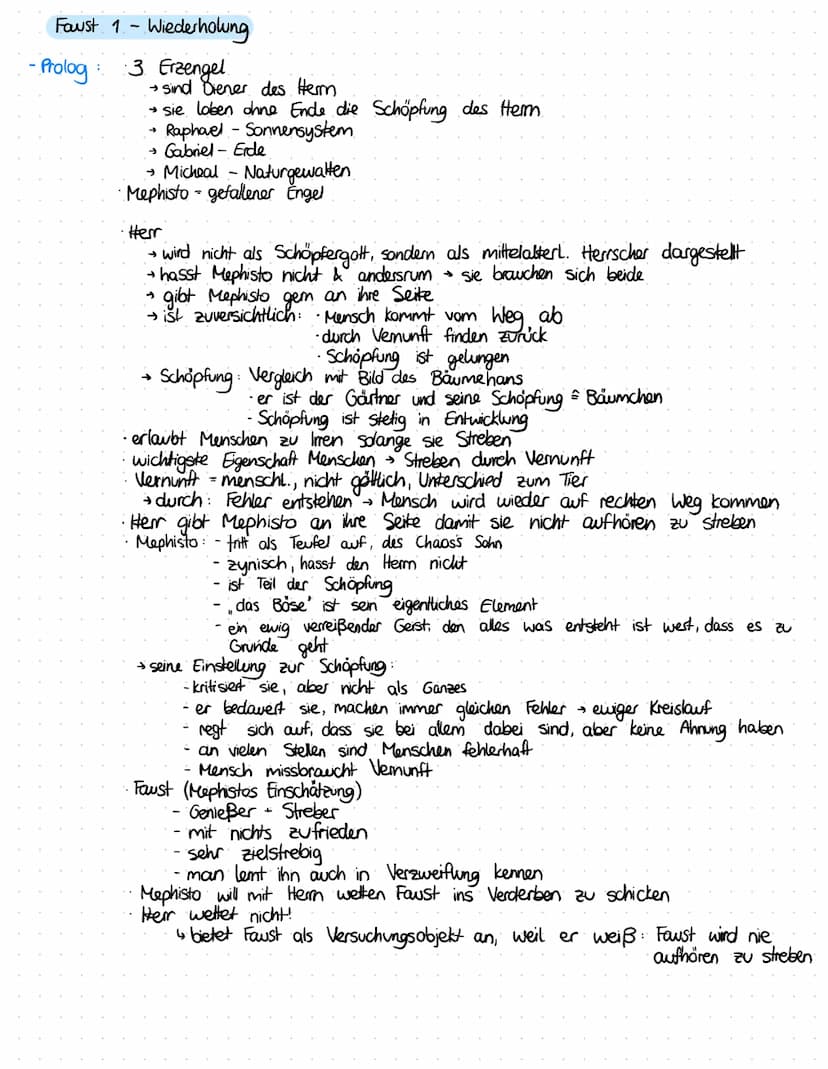 Faust 1 - Wiederholung
- Prolog : · 3 Erzengel
→ sind Diener des Herrn
→ sie loben ohne Ende die Schöpfung des Herrn
→ Raphael - Sonnensystem
→ Gabriel - Erde
→ Micheal - Naturgewalten
· Mephisto - gefallener Engel
· Herr
→ wird nicht als Schöpfergott, sondern als mittelalterl. Herrscher dargestellt
→ hasst Mephisto nicht & andersrum → sie brauchen sich beide
→ gibt Mephisto gern an ihre Seite
→ ist zuversichtlich: · Mensch kommt vom Weg ab
· durch Vernunft finden zurück
· Schöpfung ist gelungen
→ Schöpfung: Vergleich mit Bild des Bäumchans
· er ist der Gärtner und seine Schöpfung ≙ Bäumchen
- Schöpfung ist stetig in Entwicklung
· erlaubt Menschen zu Irren solange sie Streben
· wichtigste Eigenschaft Menschen → Streben durch Vernunft
· Vernunft = menschl., nicht göttlich, Unterschied zum Tier
→ durch: Fehler entstehen → Mensch wird wieder auf rechten Weg kommen
· Herr gibt Mephisto an ihre Seite damit sie nicht aufhören zu streben
· Mephisto: - tritt als Teufel auf, des Chaos's Sohn
- zynisch, hasst den Herrn nicht
- ist Teil der Schöpfung
- „das Böse" ist sein eigentliches Element
- ein ewig verreißender Geist, den alles was entsteht ist wert, dass es zu
Grunde geht
→ seine Einstellung zur Schöpfung:
- kritisiert sie, aber nicht als Ganzes
- er bedauert sie, machen immer gleichen Fehler → ewiger Kreislauf
- regt sich auf, dass sie bei allem dabei sind, aber keine Ahnung haben
- an vielen Stellen sind Menschen fehlerhaft
- Mensch missbraucht Vernunft
· Faust (Mephistos Einschätzung)
- Genießer + Streber
- mit nichts zufrieden
- sehr zielstrebig
- man lernt ihn auch in Verzweiflung kennen
· Mephisto will mit Herrn wetten Faust ins Verderben zu schicken
· Herr wettet nicht!
↳ bietet Faust als Versuchungsobjekt an, weil er weiß: Faust wird nie
aufhören zu streben